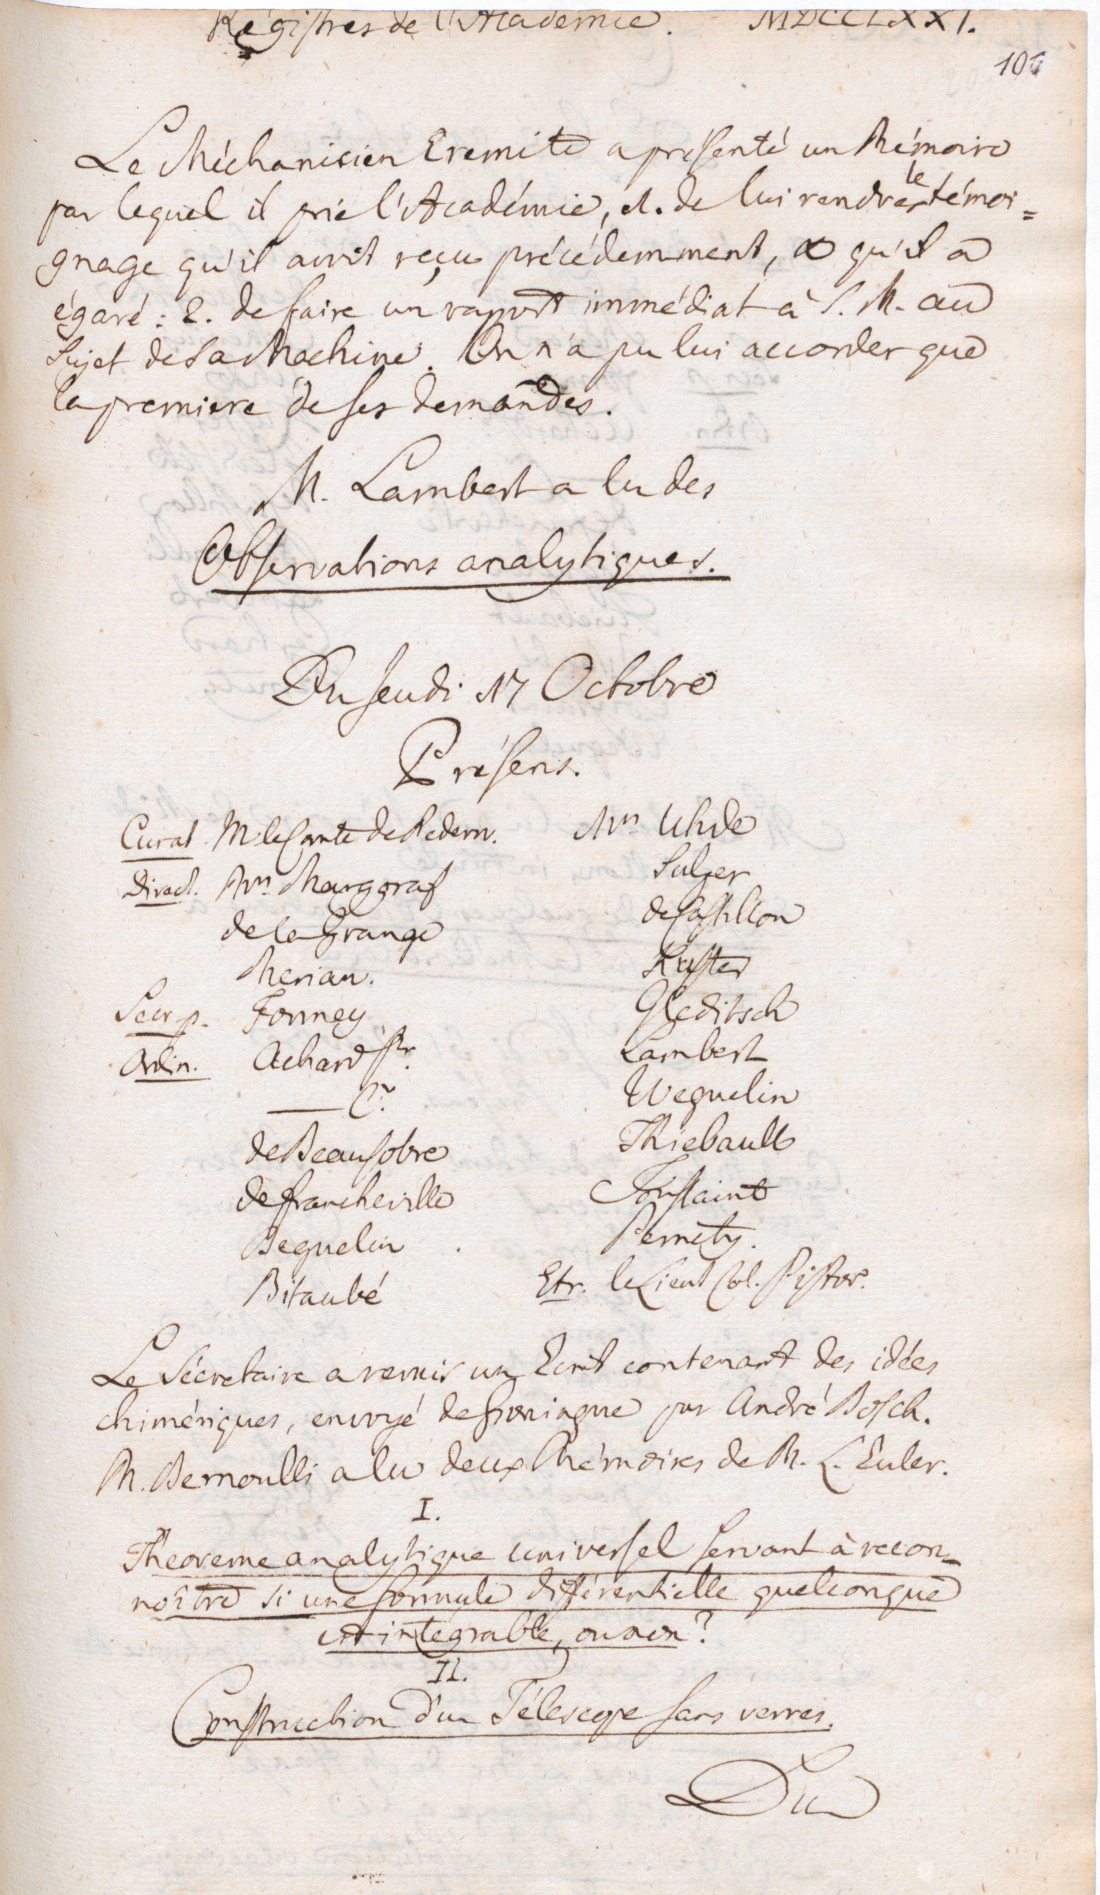 Régistres de l'Académie. MDCCLXXI.
106
Le Méchanicien Eremite a présenté un Mémoire
par lequel il prie l'Académie, 1. de lui rendre le témoi=
gnage qu'il avoit reçu précédemment, & qu'il a
égaré: 2. de faire un rapport immédiat à S. M. au
sujet de sa Machine. On n'a pu lui accorder que
la premiere de ses demandes.
M. Lambert a lu des
Observations analytiques.
Du Jeudi 17 Octobre
Présens.
Curat. M. le Comte de Redern.
Direct. Mrs Marggraf
de la Grange
Merian.
Secr. p. Formey
Ordin. Achard Pr.
—— C.
de Beausobre
de Francheville
Beguelin
Bitaubé
Mrs Uhde
Sulzer
de Castillon
Kuster
Gleditsch
Lambert
Weguelin
Thiebault
Toussaint
Pernety.
Etr. le Lieut. Col. Pistor.
Le Sécretaire a remis un Ecrit contenant des idées
chimériques, envoyé de Groningue par André Bosch.
M. Bernoulli a lu deux Mémoires de M. L. Euler.
I.
Theoreme analytique universel servant à recon=
noître si une formule différentielle quelconque
est integrable, ou non?
II.
Construction d'un Télescope sans verres.
Du